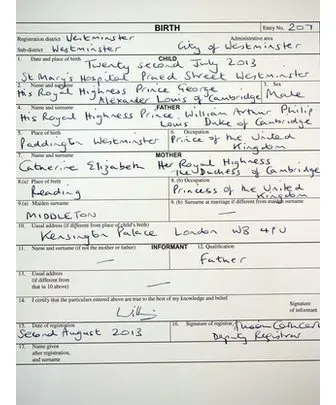 BIRTH
Entry No. 207
Registration district Westminster
Administrative area
Sub-district Westminster
City of Westminster
1. Date and place of birth CHILD
Twenty second July 2013
St Mary's Hospital Praed Street Westminster
2. Name and surname
3. Sex
His Royal Highness Prince George
Alexander Louis of Cambridge
Male
4. Name and surname FATHER
His Royal Highness Prince William Arthur Philip
Louis Duke of Cambridge
5. Place of birth
6. Occupation
Paddington Westminster
Prince of the United
Kingdom
7. Name and surname MOTHER
Catherine Elizabeth Her Royal Highness
The Duchess of Cambridge
8.(a) Place of birth
8.(b) Occupation
Reading
Princess of the United
Kingdom
9.(a) Maiden surname
9.(b) Surname at marriage if different from maiden surname
MIDDLETON
10. Usual address (if different from place of child's birth)
Kensington Palace London W8 4PU
11. Name and surname (if not the mother or father) INFORMANT
12. Qualification
Father
13. Usual address
(if different from
that in 10 above)
14. I certify that the particulars entered above are true to the best of my knowledge and belief
Signature
of informant
15. Date of registration
16. Signature of registrar
Second August 2013
Deputy Registrar
17. Name given
after registration,
and surname